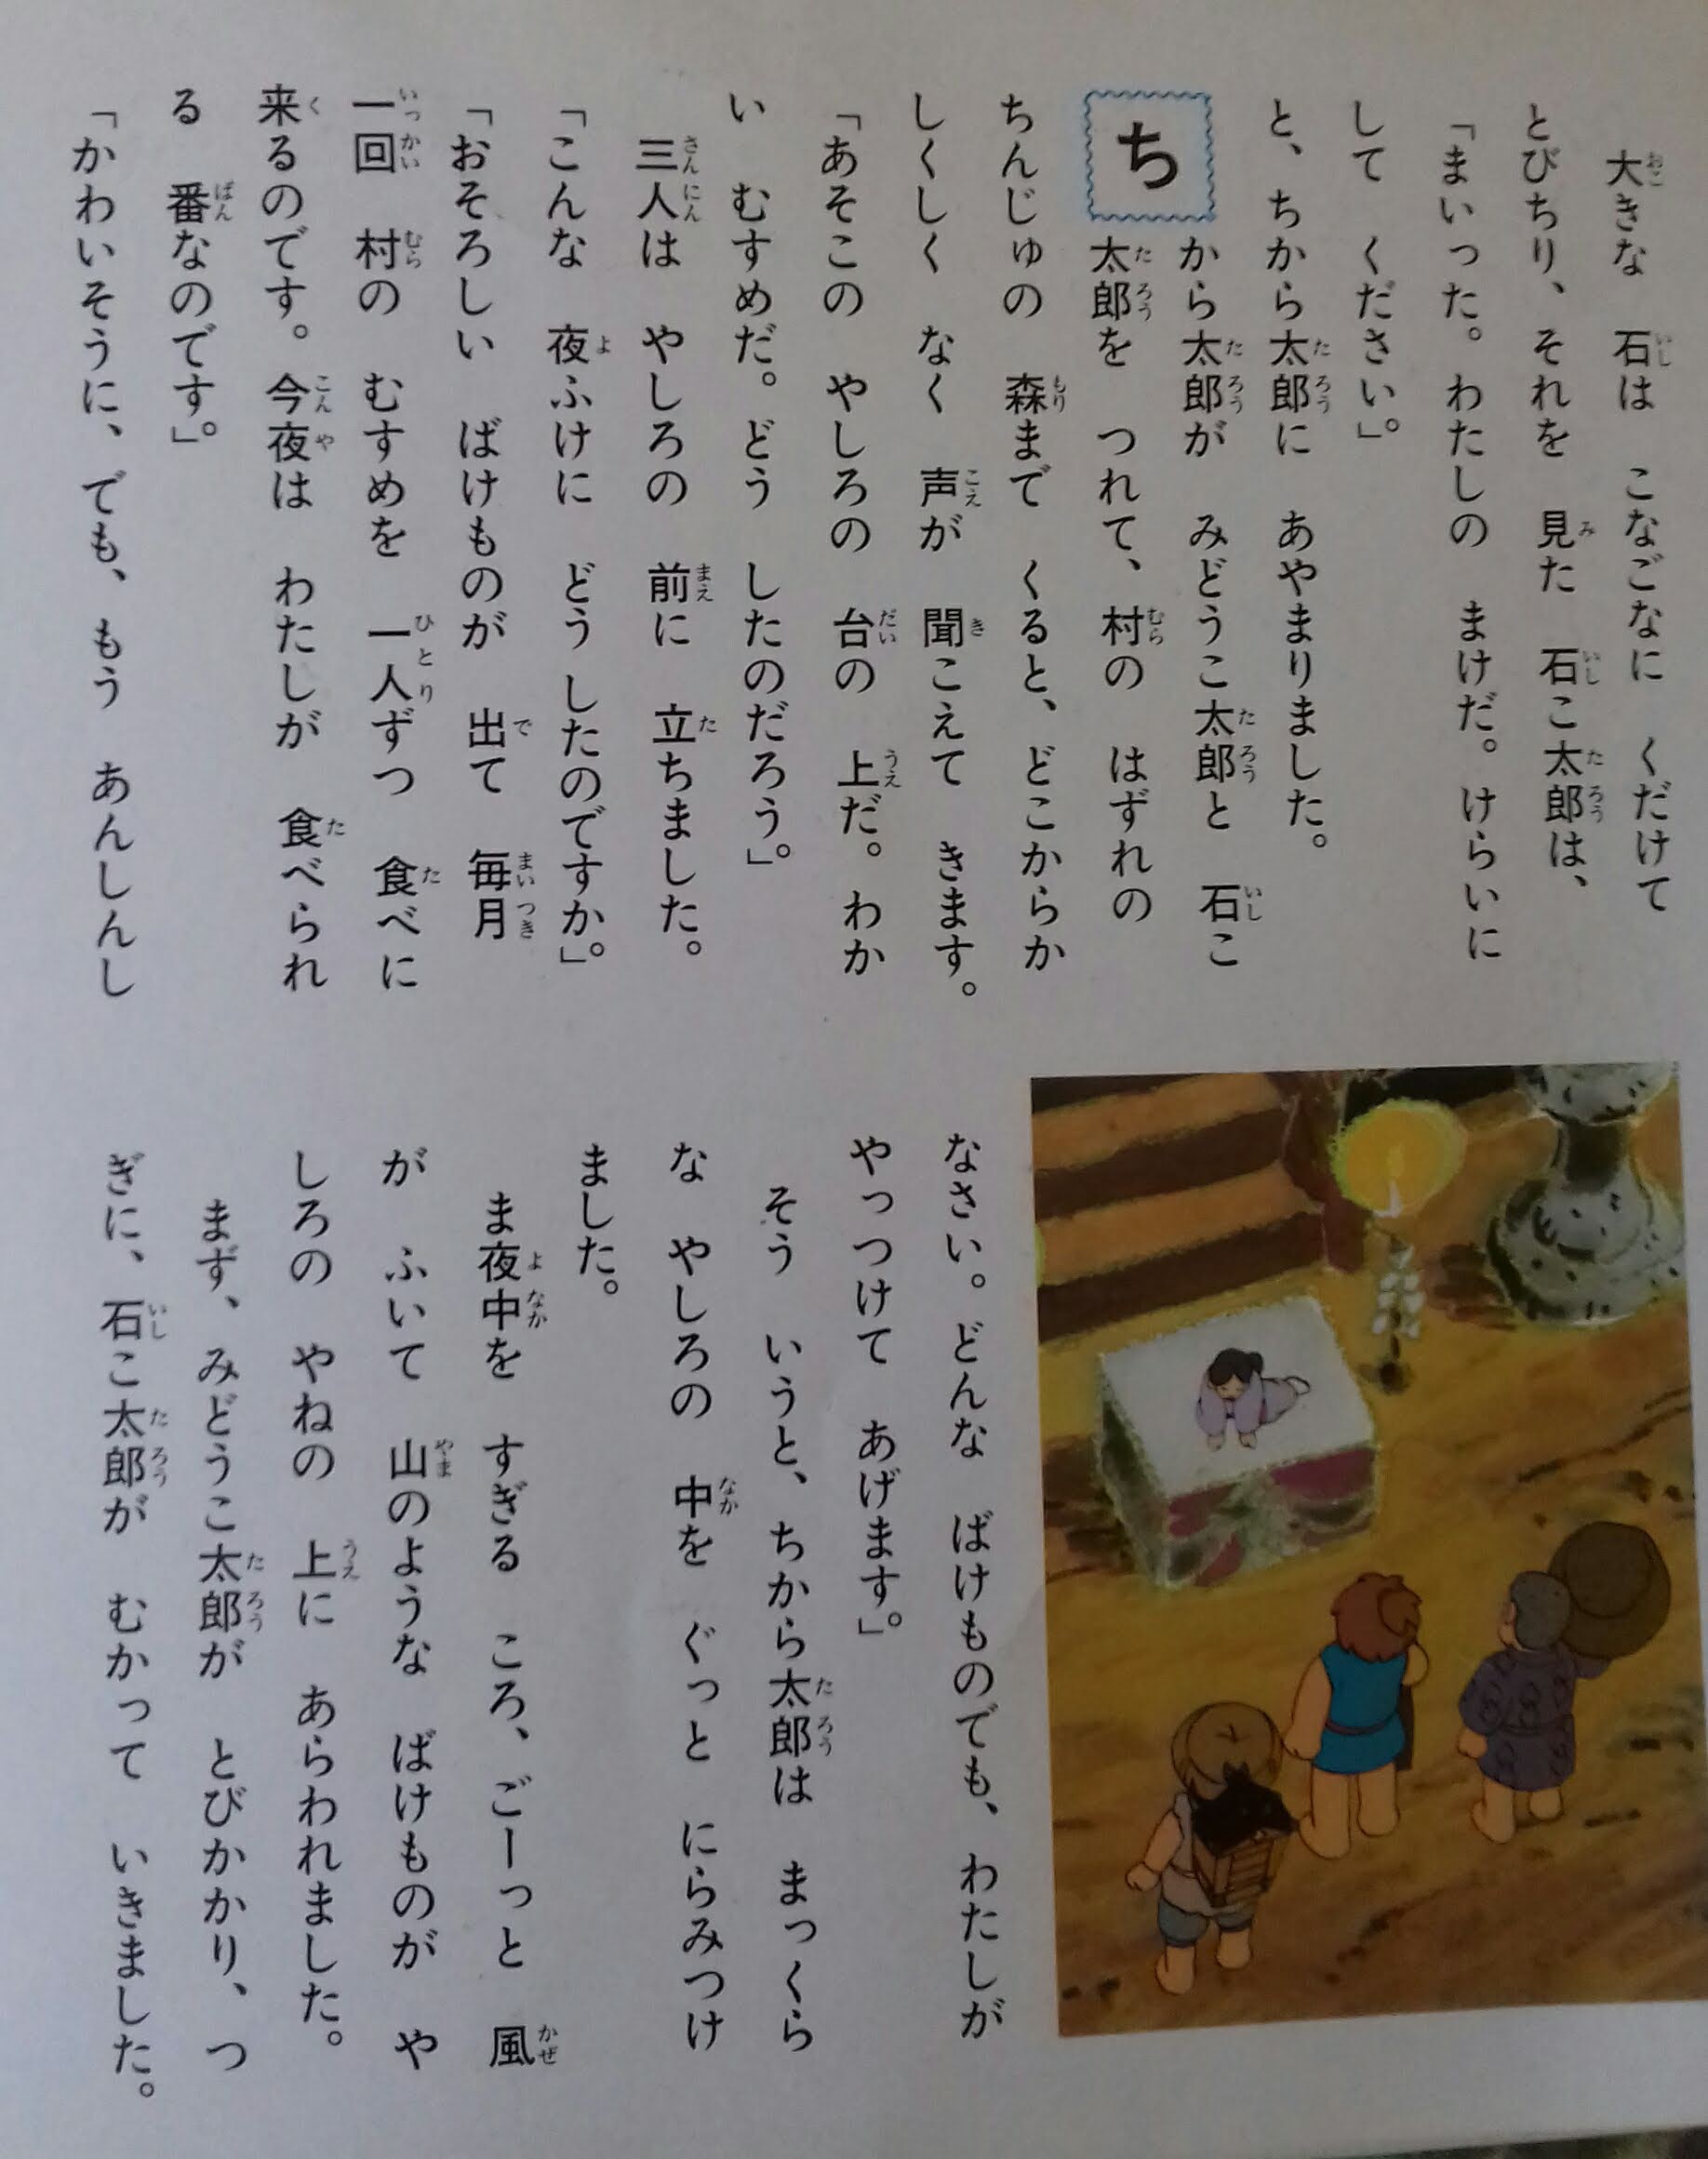 大きな　石は　こなごなに　くだけて
とびちり、それを　見た　石こ太郎は、
「まいった。わたしの　まけだ。けらいに
して　ください。」
と、ちから太郎に　あやまりました。
ちから太郎が　みどうこ太郎と　石こ
太郎を　つれて、村の　はずれの
ちんじゅの　森まで　くると、どこからか
しくしく　なく　声が　聞こえて　きます。
「あそこの　やしろの　台の　上だ。わか
い　むすめだ。どう　したのだろう。」
三人は　やしろの　前に　立ちました。
「こんな　夜ふけに　どう したのですか。」
「おそろしい　ばけものが　出て　毎月
一回　村の　むすめを　一人ずつ　食べに
来るのです。今夜は　わたしが　食べられ
る　番なのです。」
「かわいそうに、でも、もう　あんしんし
なさい。どんな　ばけものでも、わたしが
やっつけて　あげます。」
そう　いうと、ちから太郎は　まっくら
な　やしろの　中を　ぐっと　にらみつけ
ました。
ま夜中を　すぎる　ころ、ごーっと　風
が　ふいて　山のような　ばけものが　や
しろの　やねの　上に　あらわれました。
まず、みどうこ太郎が　とびかかり、つ
ぎに、石こ太郎が　むかって　いきました。